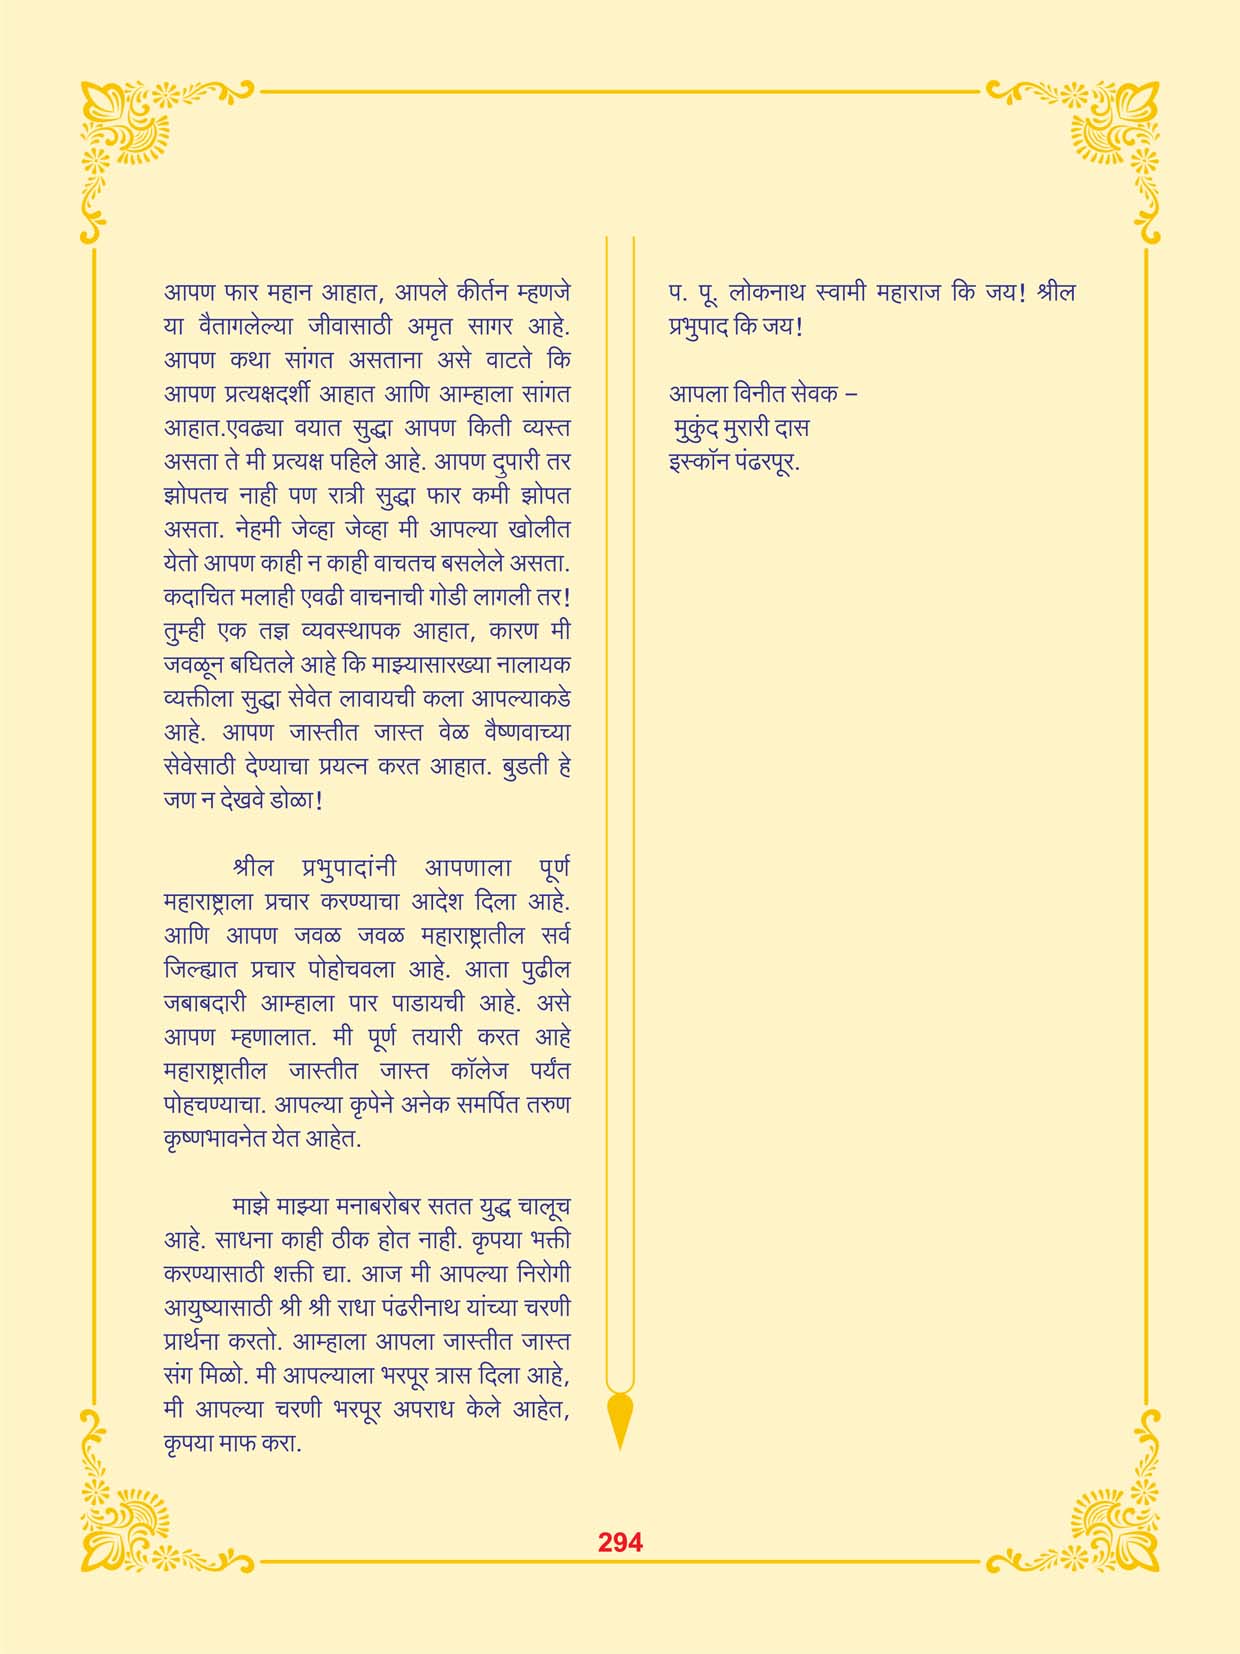 आपण फार महान आहात, आपले कीर्तन म्हणजे
या वैतागलेल्या जीवासाठी अमृत सागर आहे.
आपण कथा सांगत असताना असे वाटते कि
आपण प्रत्यक्षदर्शी आहात आणि आम्हाला सांगत
आहात.एवढ्या वयात सुद्धा आपण किती व्यस्त
असता ते मी प्रत्यक्ष पहिले आहे. आपण दुपारी तर
झोपतच नाही पण रात्री सुद्धा फार कमी झोपत
असता. नेहमी जेव्हा जेव्हा मी आपल्या खोलीत
येतो आपण काही न काही वाचतच बसलेले असता.
कदाचित मलाही एवढी वाचनाची गोडी लागली तर!
तुम्ही एक तज्ञ व्यवस्थापक आहात, कारण मी
जवळून बघितले आहे कि माझ्यासारख्या नालायक
व्यक्तीला सुद्धा सेवेत लावायची कला आपल्याकडे
आहे. आपण जास्तीत जास्त वेळ वैष्णवाच्या
सेवेसाठी देण्याचा प्रयत्न करत आहात. बुडती हे
जण न देखवे डोळा!
श्रील प्रभुपादांनी आपणाला पूर्ण
महाराष्ट्राला प्रचार करण्याचा आदेश दिला आहे.
आणि आपण जवळ जवळ महाराष्ट्रातील सर्व
जिल्ह्यात प्रचार पोहोचवला आहे. आता पुढील
जबाबदारी आम्हाला पार पाडायची आहे. असे
आपण म्हणालात. मी पूर्ण तयारी करत आहे
महाराष्ट्रातील जास्तीत जास्त कॉलेज पर्यंत
पोहचण्याचा. आपल्या कृपेने अनेक समर्पित तरुण
कृष्णभावनेत येत आहेत.
माझे माझ्या मनाबरोबर सतत युद्ध चालूच
आहे. साधना काही ठीक होत नाही. कृपया भक्ती
करण्यासाठी शक्ती द्या. आज मी आपल्या निरोगी
आयुष्यासाठी श्री श्री राधा पंढरीनाथ यांच्या चरणी
प्रार्थना करतो. आम्हाला आपला जास्तीत जास्त
संग मिळो. मी आपल्याला भरपूर त्रास दिला आहे,
मी आपल्या चरणी भरपूर अपराध केले आहेत,
कृपया माफ करा.
प. पू. लोकनाथ स्वामी महाराज कि जय! श्रील
प्रभुपाद कि जय!
आपला विनीत सेवक –
मुकुंद मुरारी दास
इस्कॉन पंढरपूर.
294